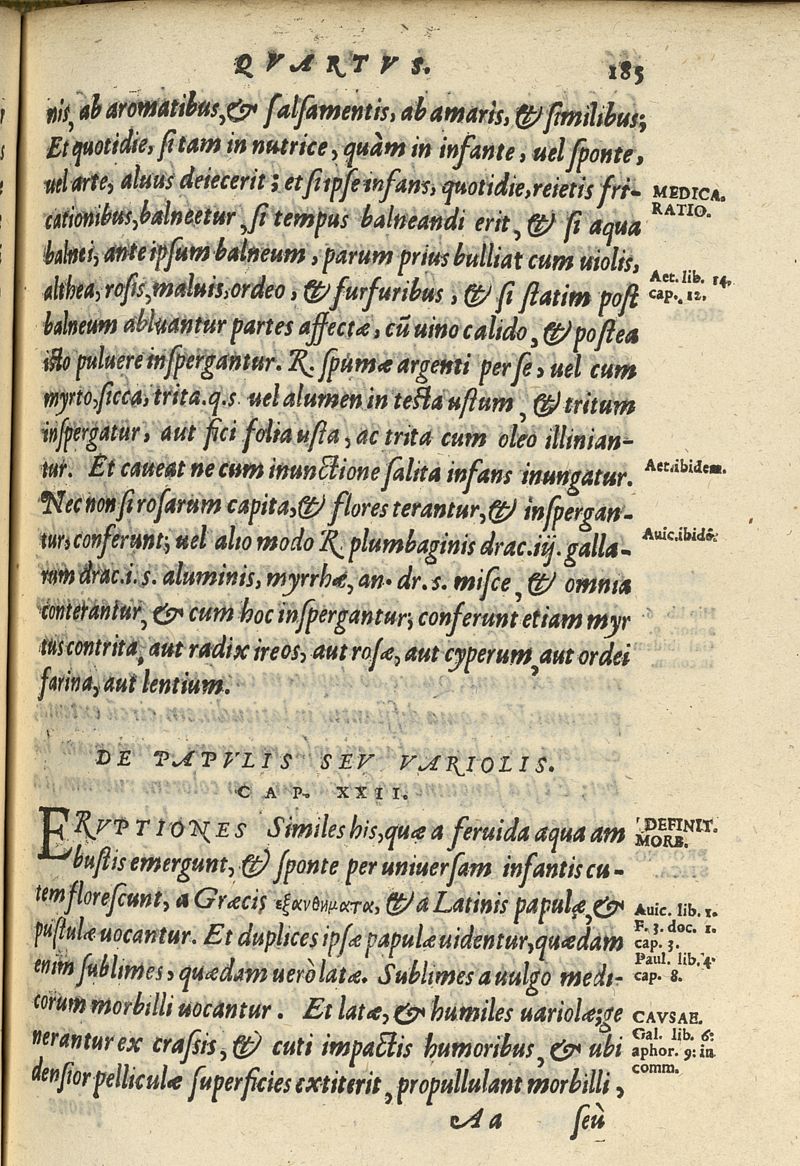 QVARTVS. 185
nis, ab aromatibus, & salsamentis, ab amaris, & similibus;
Et quotidie, si tam in nutrice, quàm in infante, uel sponte,
uel arte, aluus deiecerit; et si ipse infans, quotidie, reietis fri-
cationibus, balneetur, si tempus balneandi erit, & si aqua
balnei, ante ipsum balneum, parum prius bulliat cum uiolis,
althea, rosis, maluis, ordeo, & furfuribus, & si statim post
balneum abluantur partes affectæ, cū uino calido, & postea
isto puluere inspergantur. R. spumæ argenti per se, uel cum
myrto, sicca, trita. q.s. uel alumen in testa ustum, & tritum
inspergatur, aut fici folia usta, ac trita cum oleo illinian-
tur. Et caueat ne cum inunctione salita infans inungatur.
Nec non si rosarum capita, & flores terantur, & inspergan-
tur, conferunt; uel alio modo R. plumbaginis drac. iij. galla-
rum drac. i. s. aluminis, myrrhæ, an. dr. s. misce, & omnia
conterantur, & cum hoc inspergantur; conferunt etiam myr
tus contrita, aut radix ireos, aut rosæ, aut cyperum, aut ordei
farina, aut lentium.
MEDICA.
RATIO.
Aet. lib. 14.
cap. 12.
Aet. ibidem.
Auic. ibidē.
DE PAPVLIS SEV VARIOLIS.
CAP. XXII.
ERVPTIONES Similes his, quæ a feruida aqua am
bustis emergunt, & sponte per uniuersam infantis cu-
tem florescunt, a Græcis ἐξανθηματα, & a Latinis papulæ, &
pustulæ uocantur. Et duplices ipsæ papulæ uidentur, quædam
enim sublimes, quædam uerò latæ. Sublimes a uulgo medi-
corum morbilli uocantur. Et latæ, & humiles uariolæ; ge
nerantur ex crassis, & cuti impactis humoribus, & ubi
densior pelliculæ superficies extiterit, propullulant morbilli,
DEFINIT.
MORB.
Auic. lib. 1.
F. 3. doc. 1.
cap. 3.
Paul. lib. 4.
cap. 8.
CAVSAE.
Gal. lib. 6.
aphor. 9. in
comm.
Aa seù